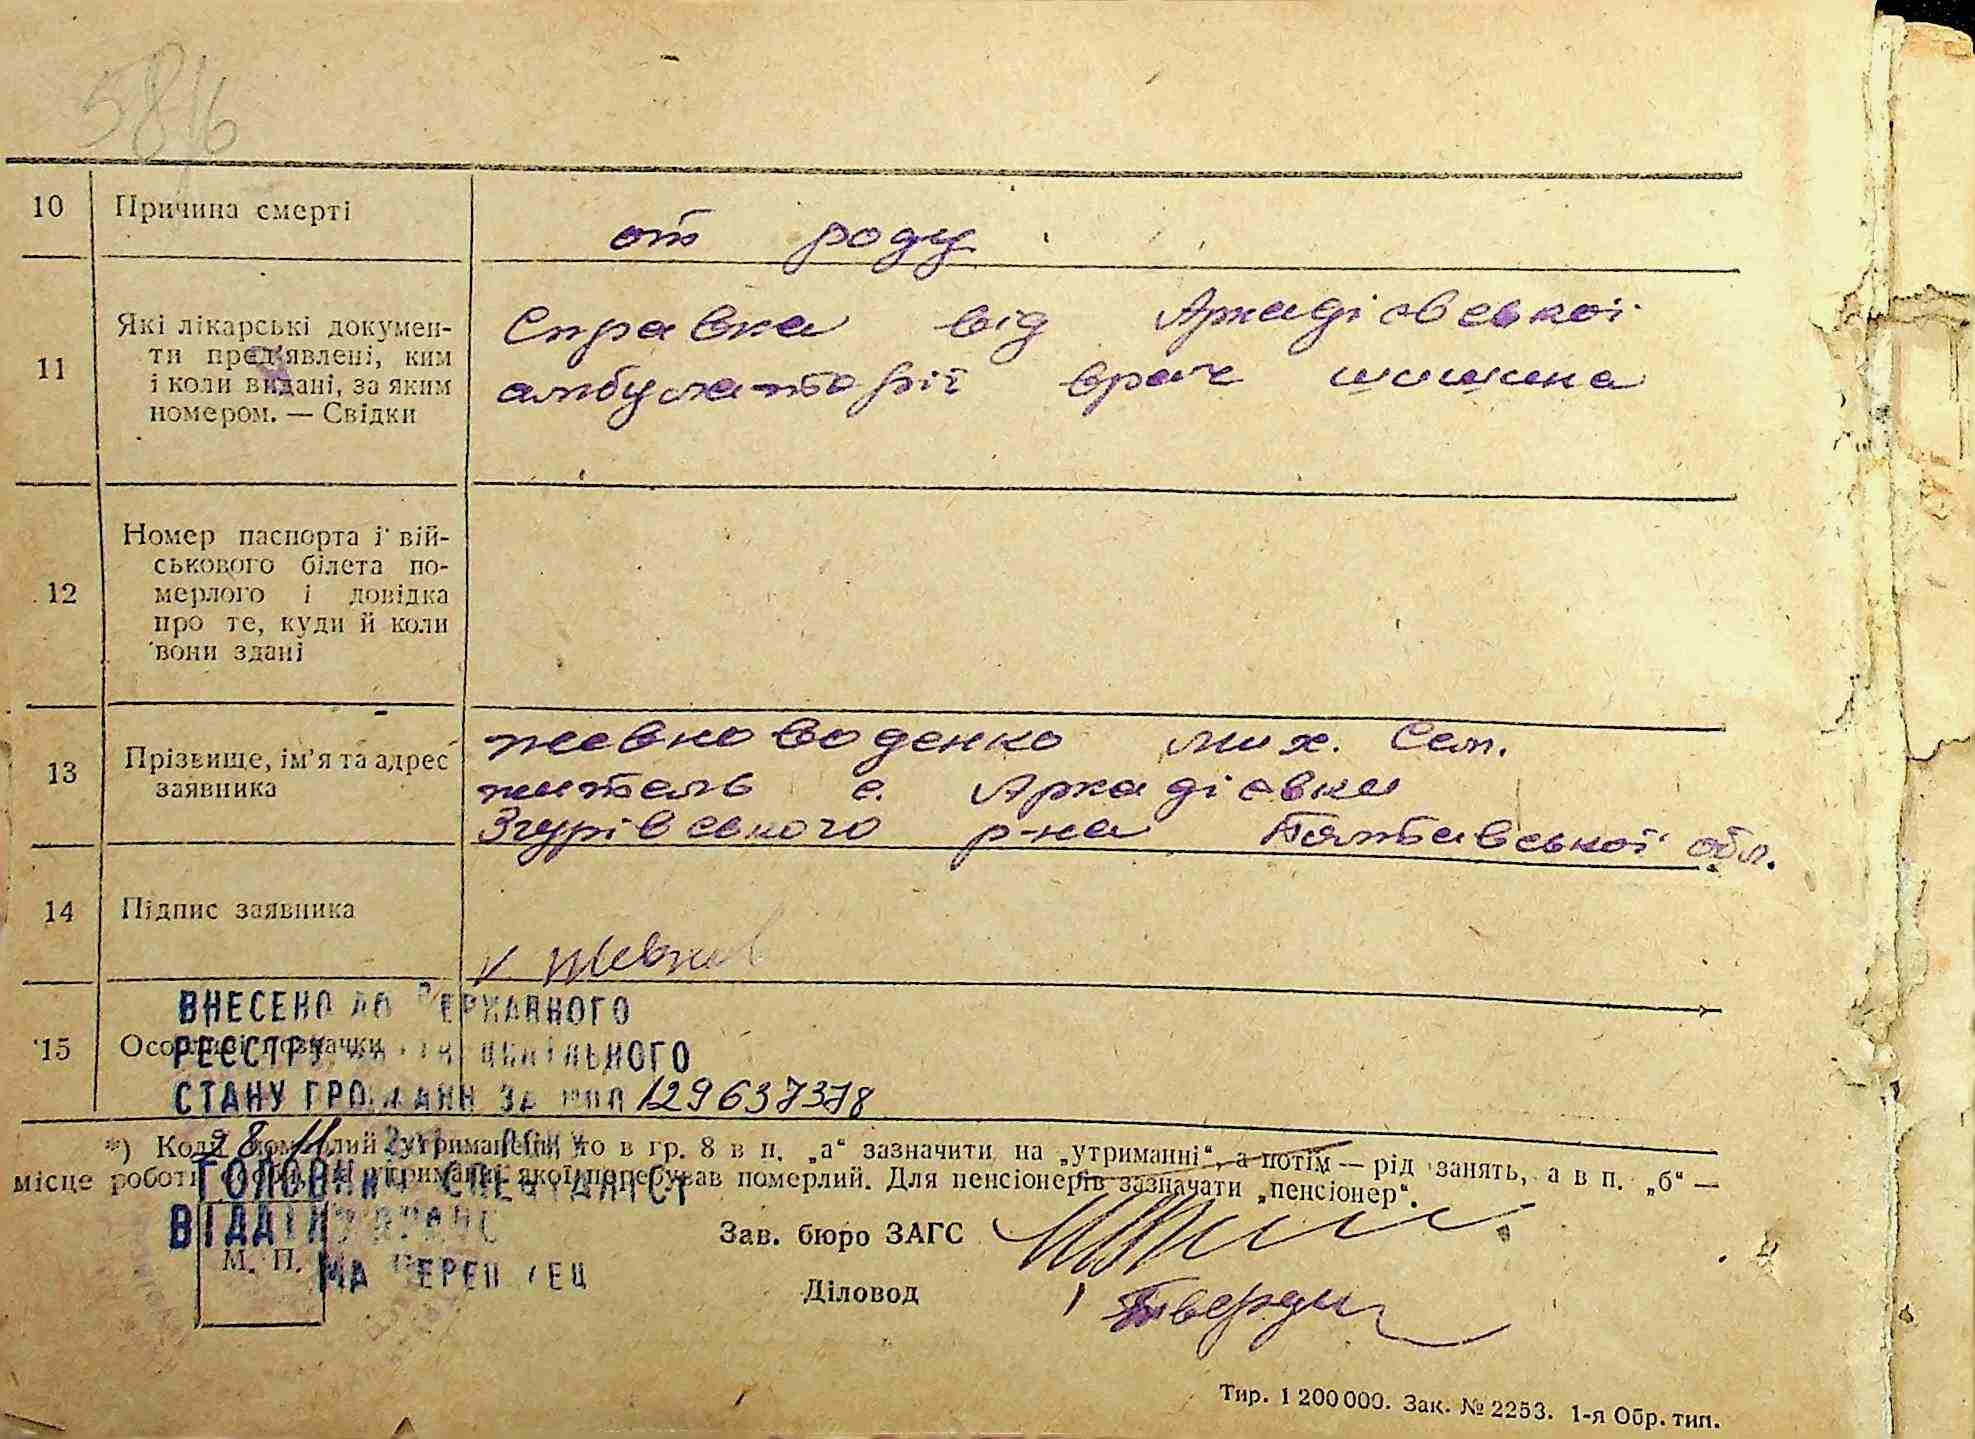 58
10 Причина смерті
от роду
11 Які лікарські докумен-
ти пред'явлені, ким
і коли видані, за яким
номером. — Свідки
Справка від Аркадієвської
амбулаторії врач шишина
12 Номер паспорта і вій-
ськового білета по-
мерлого і довідка
про те, куди й коли
вони здані
13 Прізвище, ім'я та адрес
заявника
жевноводенко мих. Сем.
житель с. Аркадієвки
Згурівського р-на Полтавської обл.
14 Підпис заявника
15
ВНЕСЕНО ДО ДЕРЖАВНОГО
РЕЄСТРУ АКТІВ ЦИВІЛЬНОГО
СТАНУ ГРОМАДЯН ЗА 129637378
28.11.
*) Коли померлий утриманець, то в гр. 8 в п. „а“ зазначити на „утриманні“, а потім — рід занять, а в п. „б“ —
місце роботи утриманні якої перебував померлий. Для пенсіонерів зазначати „пенсіонер“.
ГОЛОВНИЙ СПЕЦІАЛІСТ
ВІДДІЛУ
М. П.
Зав. бюро ЗАГС
Діловод
Тир. 1 200 000. Зак. № 2253. 1-я Обр. тип.